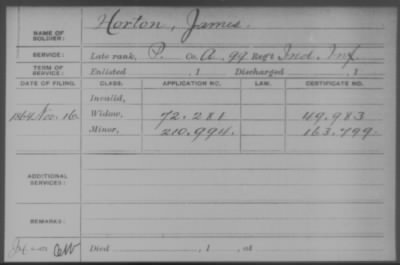 Horton, James.
NAME OF SOLDIER:
SERVICE: Late rank, P. Co. A, 99 Reg't Ind. Inf.
TERM OF SERVICE: Enlisted , 1 Discharged , 1
DATE OF FILING. CLASS. APPLICATION NO. LAW. CERTIFICATE NO.
Invalid,
1864 Nov. 16. Widow, 72.281 49.983
Minor, 210.994. 163.799
ADDITIONAL SERVICES:
REMARKS:
Died , 1 , at